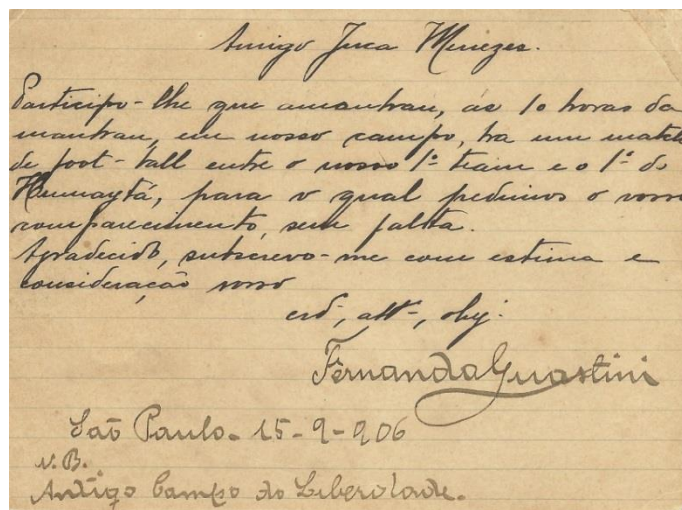 Amigo Juca Menezes.
Participo-lhe que amanhan, as 10 horas da
manhan, em nosso campo, ha um match
de foot-ball entre o nosso 1º team e o 1º do
Humaytá, para o qual pedimos o vosso
comparecimento, sem falta.
Agradecido, subscrevo-me com estima e
consideração vosso
crdº, attº, obgº
Fernanda Guastini
São Paulo. 15-9-906
N.B.
Antigo Campo do Liberdade.